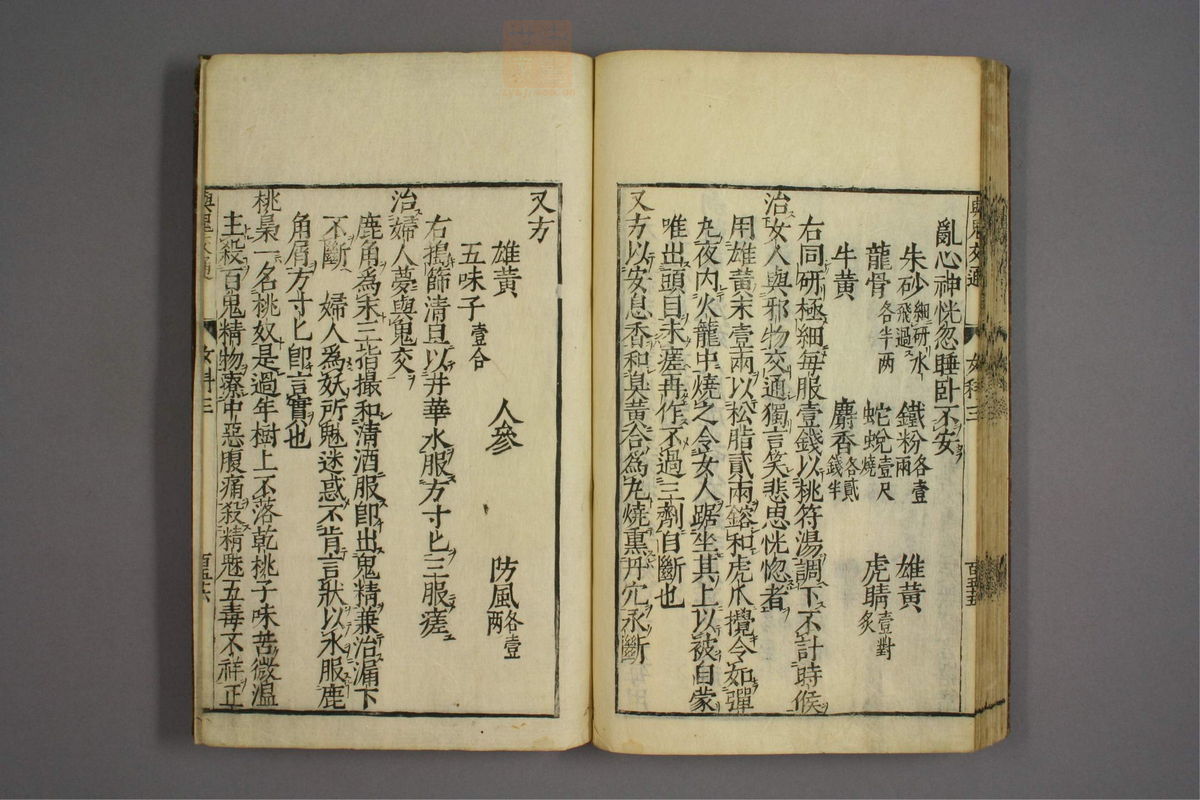 亂心神恍忽睡卧不安
朱砂細研水飛過 鐵粉各壹兩 雄黃
龍骨各半两 蛇蛻壹尺燒 虎睛壹對炙
牛黃 麝香各貳錢半
右同研極細每服壹錢以桃符湯調下不計時候
治女人與邪物交通獨言笑悲思恍惚者
用雄黃末壹兩以松脂貳兩鎔和虎爪攪令如彈
丸夜内火龍中燒之令女人踞坐其上以被自蒙
唯出頭目未瘥再作不過三劑自斷也
又方以安息香和臭黃合為丸燒熏丹穴永斷
又方
雄黃 人參 防風各壹两
五味子壹合
右搗篩清旦以井華水服方寸匕三服瘥
治婦人夢與鬼交
鹿角為末三指撮和清酒服卽出鬼精兼治漏下
不斷 婦人為妖所魅迷惑不肯言狀以水服鹿
角屑方寸匕卽言實也
桃梟一名桃奴是過年樹上不落乾桃子味苦微溫
主殺百鬼精物療中惡腹痛殺精魅五毒不祥正